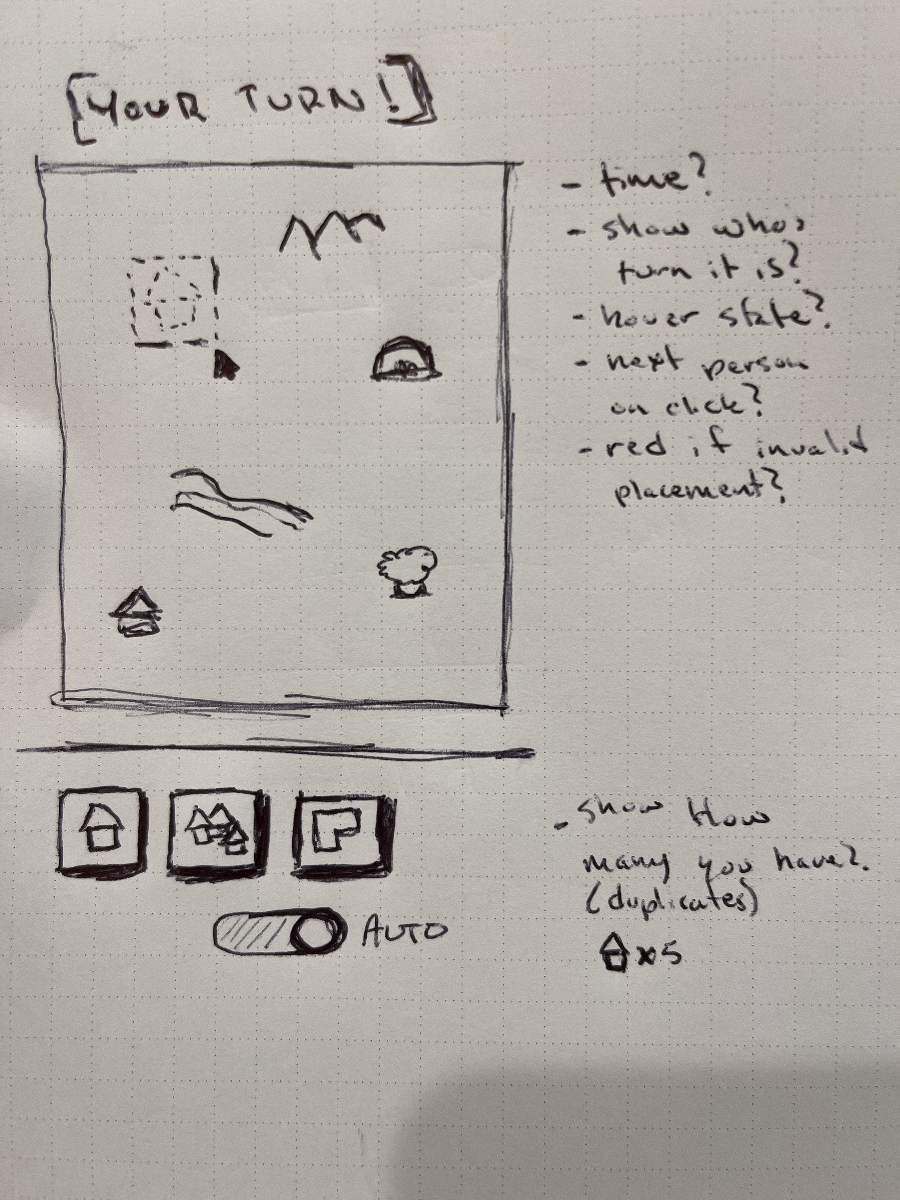 [YOUR TURN!]
- time?
- show who's
turn it is?
- hover state?
- next person
on click?
- red if invalid
placement?
- show How
many you have?
(duplicates)
x5
AUTO